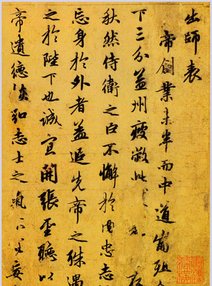 出師表
帝創業未半而中道崩殂
下三分益州疲敝此
然侍衛之臣不懈於內忠志
忘身於外者蓋追先帝之殊遇
之於陛下也誠宜開張聖聽以
帝遺德恢弘志士之氣不宜妄